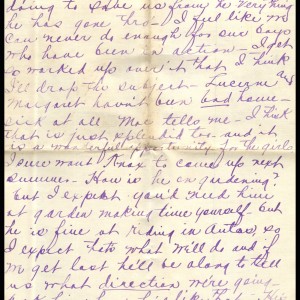 doing to
he has gone thro - I feel like we
can never do enough for our boys
who have been in action - I get
so worked up over it that I think
I'll drop the subject - Lucyne and
Margaret haven't been bad home-
sick at all Mae tells me - I think
that is just splendid too - and it
is a wonderful opportunity for the girls
I sure want Knox to come up next
summer - How is he on gardening?
But I expect you'd need him
at garden making time yourself but
he is fine at riding in autos so
I expect that's what will do and if
we get lost he'll be along to tell
us what direction we're going